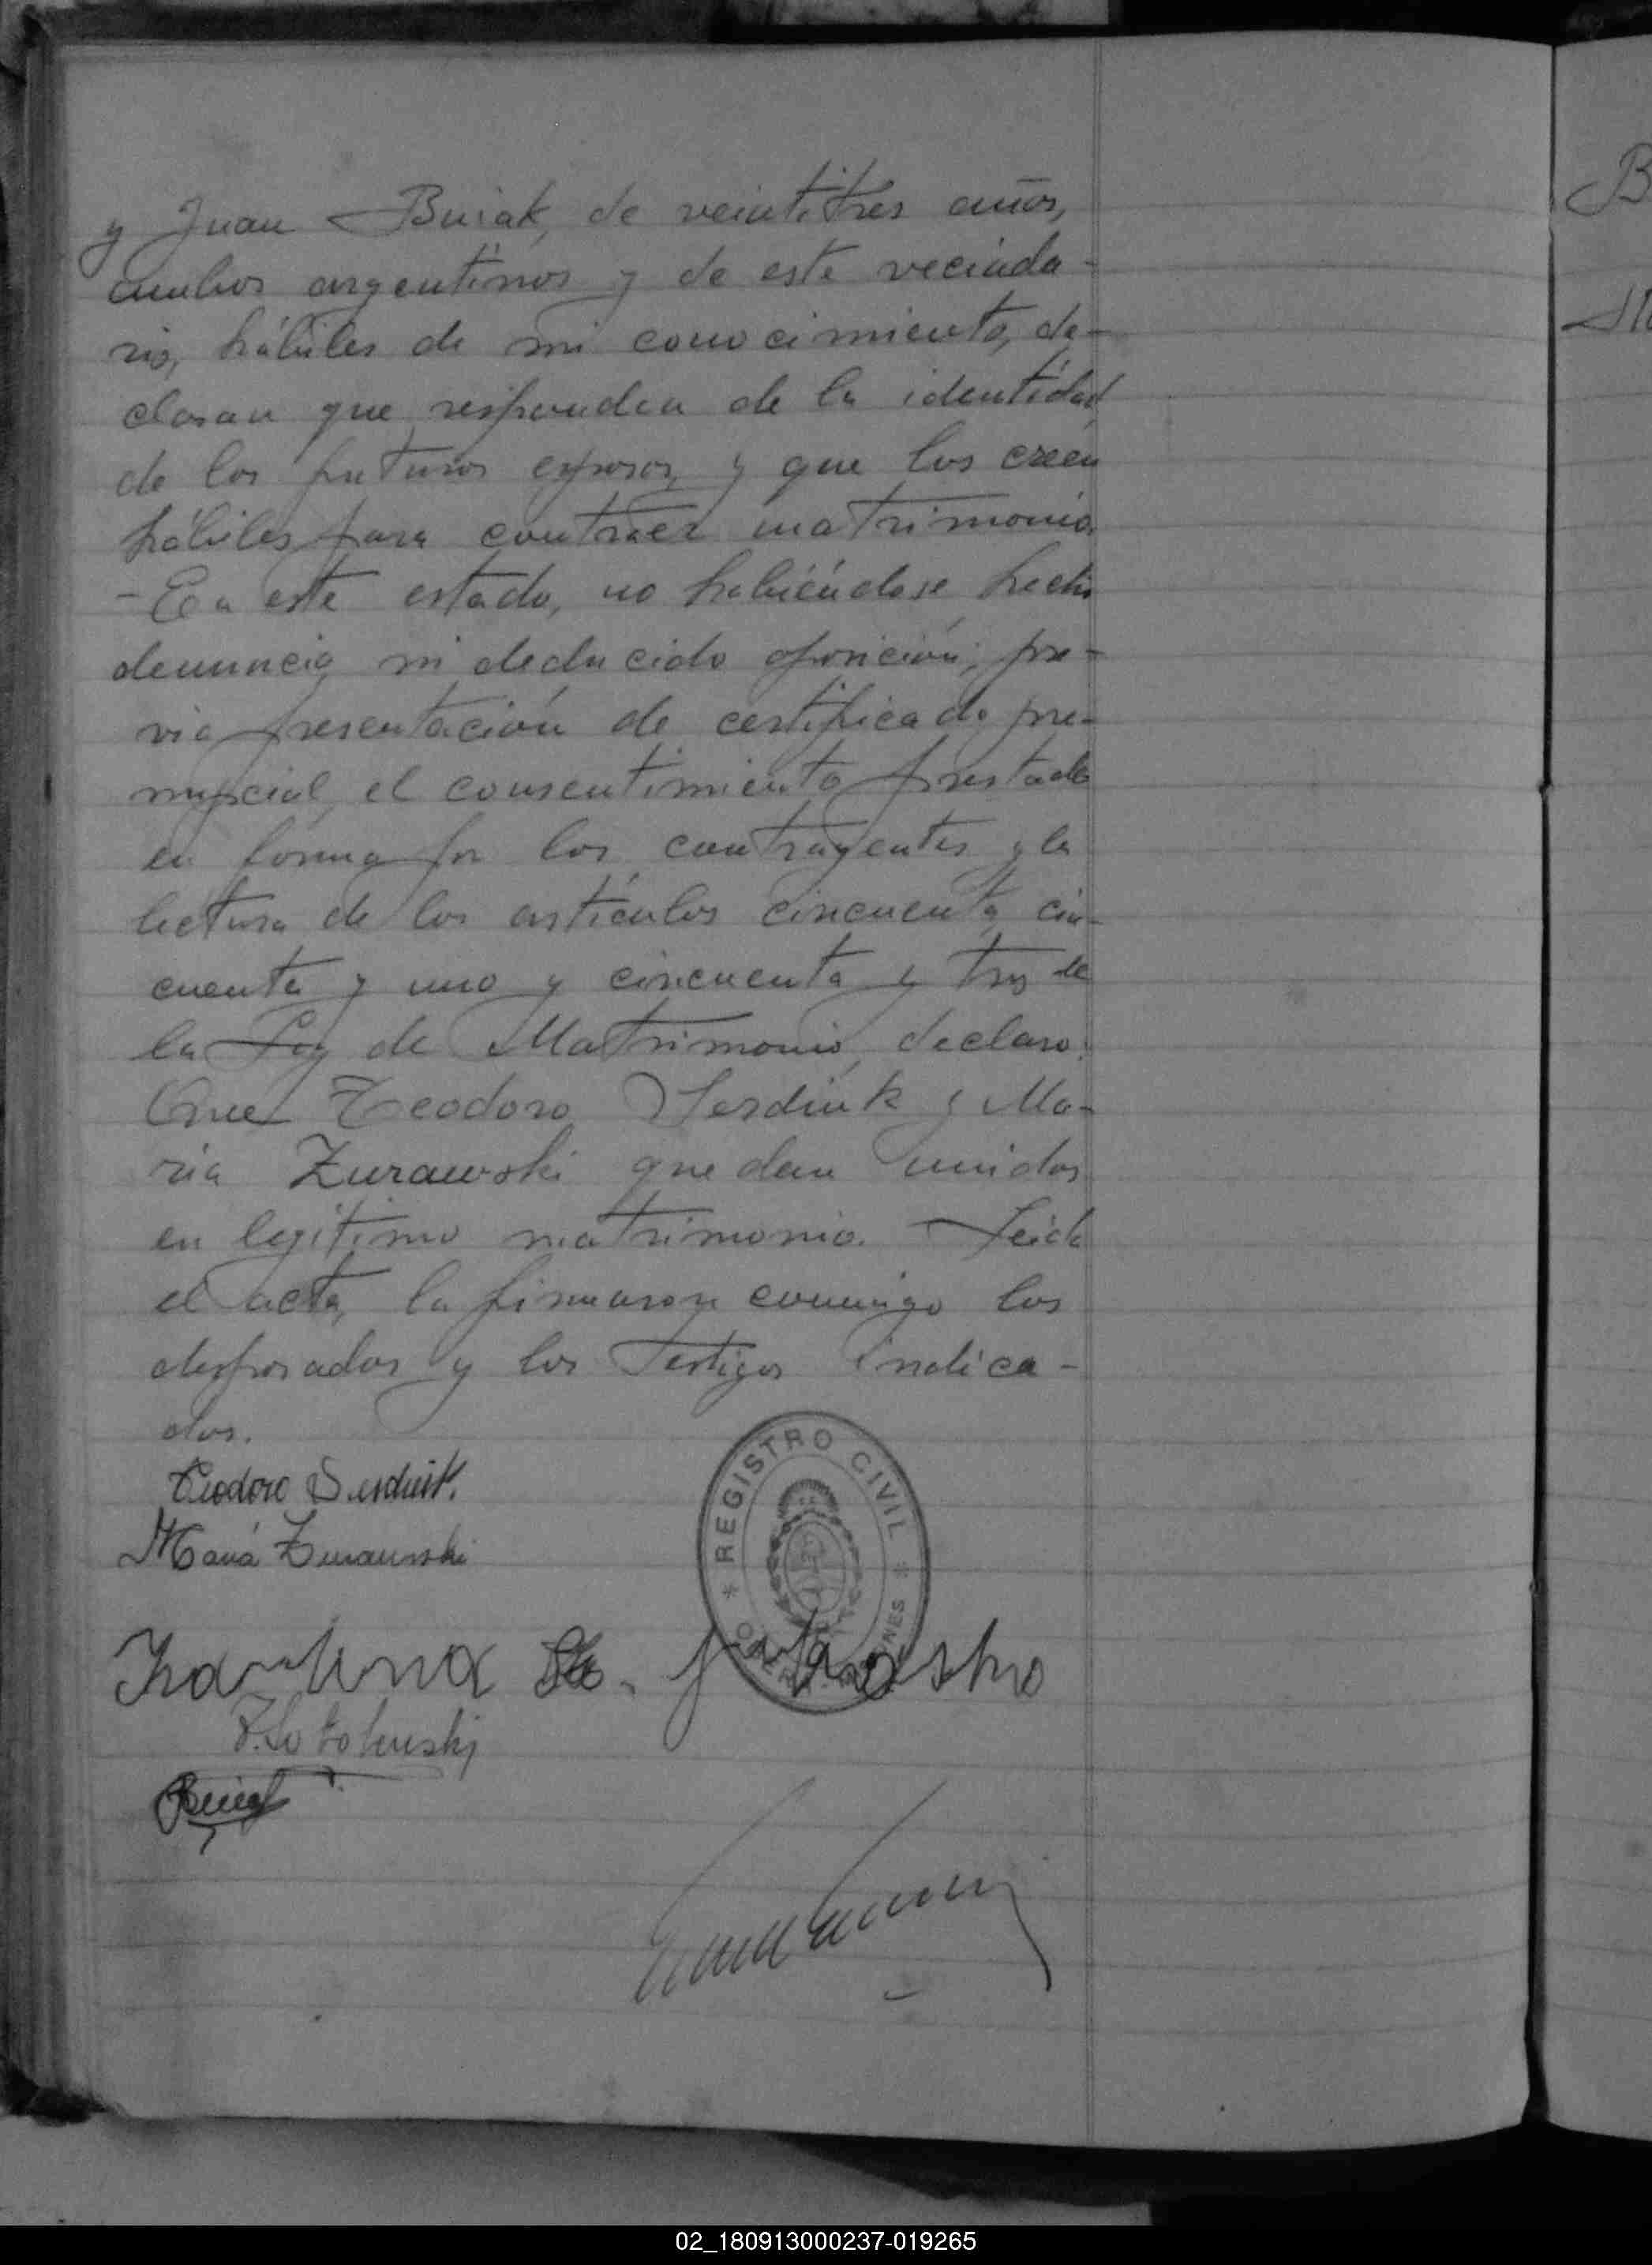 y Juan Buiak, de veintitres años,
ambos argentinos y de este vecinda-
rio, hábiles de mi conocimiento, de-
claran que responden de la identidad
de los futuros esposos, y que los creen
hábiles para contraer matrimonio.
- En este estado, no habiéndose hecho
denuncia ni deducido oposición, pre-
via presentación de certificado pre-
nupcial, el consentimiento prestado
en forma por los contrayentes y la
lectura de los artículos cincuenta, cin-
cuenta y uno y cincuenta y tres de
la Ley de Matrimonio, declaro:
Que Teodoro Serdiuk y Ma-
ria Zurawski quedan unidos
en legítimo matrimonio. Leida
el acta, la firmaron conmigo los
desposados y los testigos indica-
dos.
Teodoro Serdiuk.
María Zurawski
REGISTRO CIVIL
OBERA MISIONES
B
02_180913000237-019265